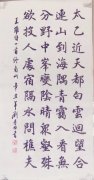 太乙近天都白雲迴望合
連山到海隅青靄入看無
分野中峯變陰晴眾壑殊
欲投人處宿隔水問樵夫
王維詩